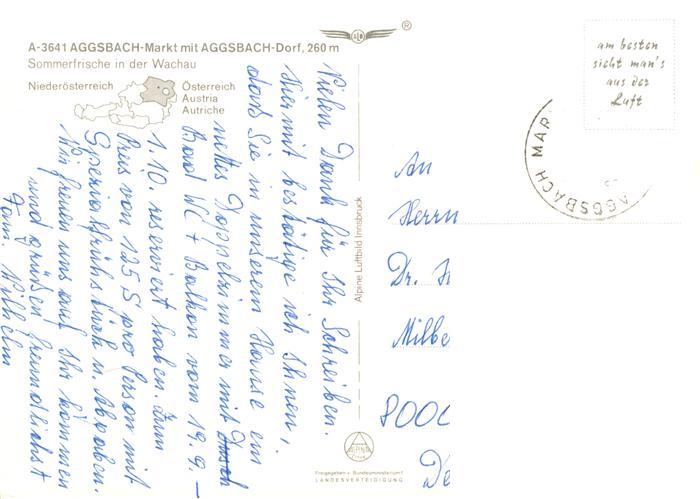 A-3641 AGGSBACH-Markt mit AGGSBACH-Dorf, 260 m
Sommerfrische in der Wachau
Niederösterreich
Österreich
Austria
Autriche
ALB
®
am besten
sieht man's
aus der
Luft
AGGSBACH MAR
AGGSBACH
Vielen Dank für Ihr Schreiben.
Hiermit bestätige ich Ihnen,
daß Sie in unserem Hause ein
nettes Doppelzimmer mit
Bad WC + Balkon vom 19.9. –
1.10. reserviert haben. Zum
Preis von 125 S pro Person mit
Spezialfrühstück u. Abgaben.
Wir freuen uns auf Ihr kommen
und grüßen freundlichst
Fam. Wilhelm
Alpine Luftbild Innsbruck
An
Herrn
Dr. H
Milbe
800
De
ALPINE
Freigegeben v. Bundesministerium f.
LANDESVERTEIDIGUNG